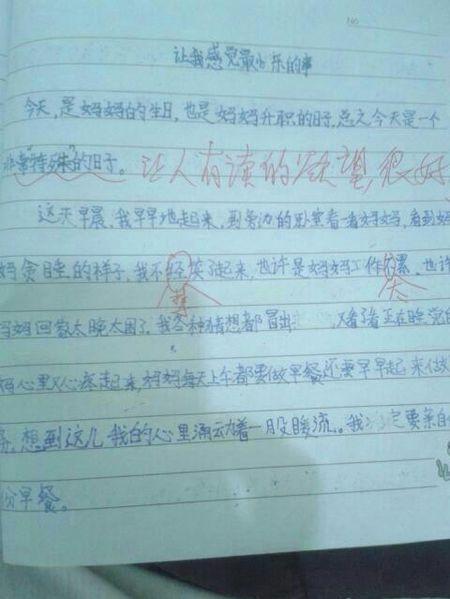 让我感觉最快乐的事
今天，是妈妈的生日，也是妈妈升职的日子，总之今天是一个
非常"特殊"的日子。让人有读的欲望，很好
这天早晨，我早早地起来，到旁边的卧室看一看妈妈，看到妈
妈贪睡的样子，我不经笑了起来，也许是妈妈工作累，也许
禁 太
妈妈回家太晚太困了，我各种猜想都冒出，又看了看正在睡觉的
妈心里又心疼起来，妈妈每天上午都要做早餐还要早早起来做
想到这儿我的心里涌动着一股暖流。我定要亲自
份早餐。